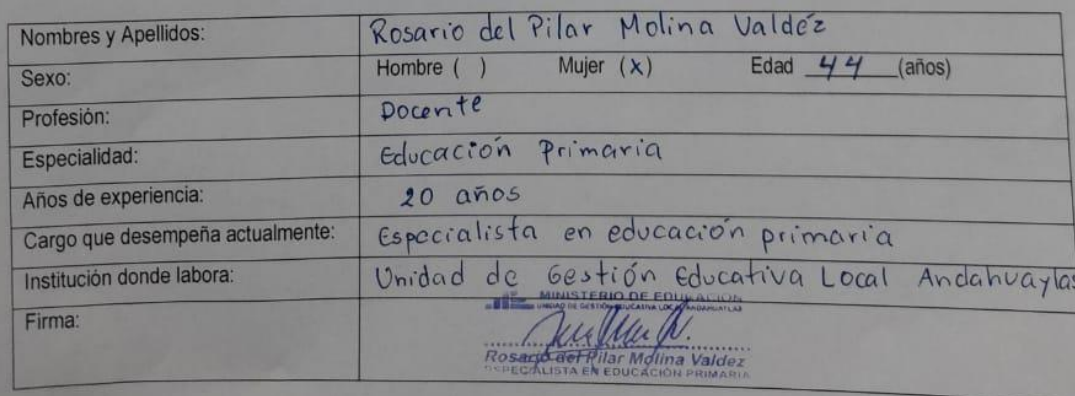 Nombres y Apellidos: Rosario del Pilar Molina Valdéz
Sexo: Hombre ( ) Mujer (x) Edad 44 (años)
Profesión: Docente
Especialidad: Educación Primaria
Años de experiencia: 20 años
Cargo que desempeña actualmente: Especialista en educación primaria
Institución donde labora: Unidad de Gestión Educativa Local Andahuaylas
MINISTERIO DE EDUCACIÓN
UNIDAD DE GESTIÓN EDUCATIVA LOCAL ANDAHUAYLAS
Firma:
Rosario del Pilar Molina Valdez
ESPECIALISTA EN EDUCACIÓN PRIMARIA